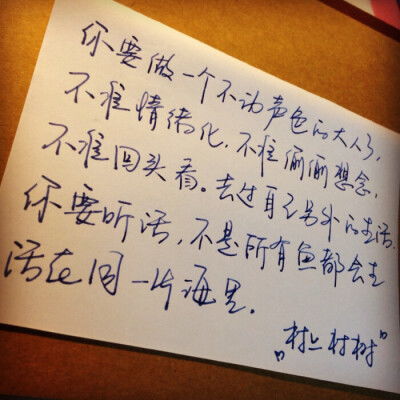 你要做一个不动声色的大人了,
不准情绪化,不准偷偷想念,
不准回头看。去过自己另外的生活.
你要听话,不是所有鱼都会生
活在同一片海里.
"村上村树"